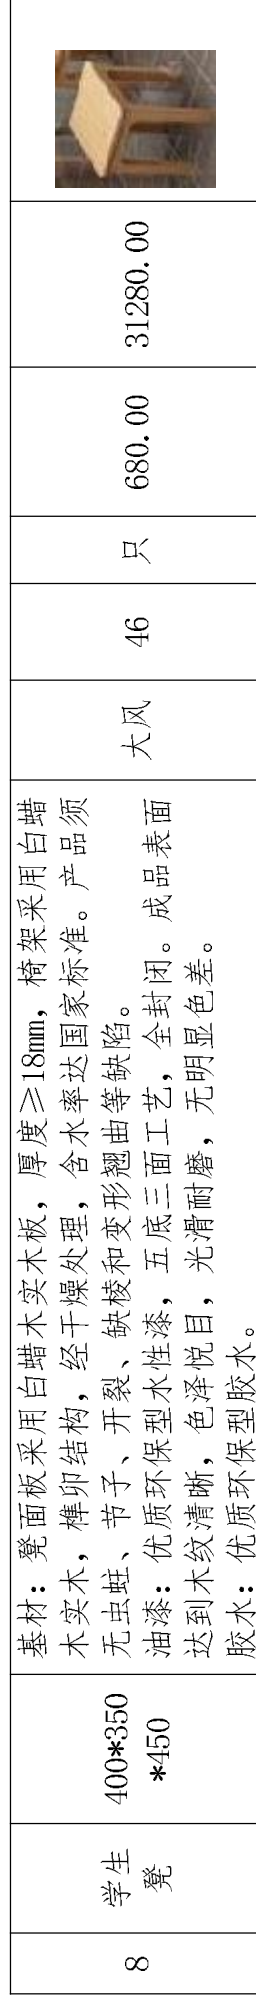 8
学生
凳
400*350
*450
基材：凳面板采用白蜡木实木板，厚度≥18mm，椅架采用白蜡
木实木，榫卯结构，经干燥处理，含水率达国家标准。产品须
无虫蛀、节子、开裂、缺棱和变形翘曲等缺陷。
油漆：优质环保型水性漆，五底三面工艺，全封闭。成品表面
达到木纹清晰，色泽悦目，光滑耐磨，无明显色差。
胶水：优质环保型胶水。
大风
46
只
680.00
31280.00